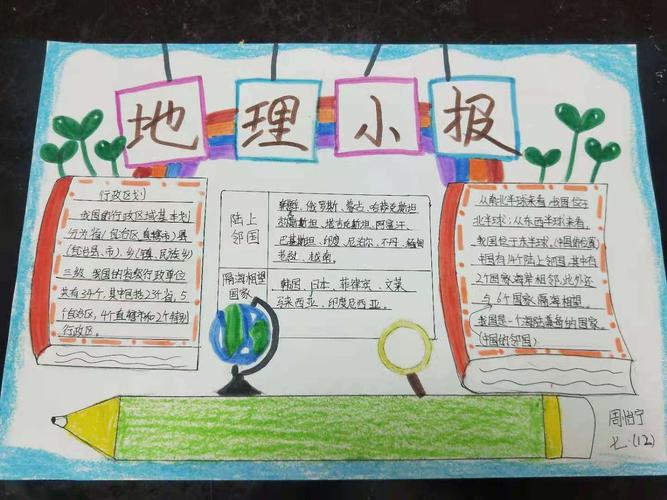 地理小报
行政区划
我国的行政区域基本划
分为省(自治区、直辖市)县
(自治县、市)、乡(镇、民族乡)
三级 我国的省级行政单位
共有34个,其中包括23个省,5
个自治区,4个直辖市和2个特别
行政区。
陆上
邻国
朝鲜、俄罗斯、蒙古、哈萨克斯坦
吉尔吉斯斯坦、塔吉克斯坦、阿富汗、
巴基斯坦、印度、尼泊尔、不丹、缅甸
老挝、越南。
隔海相望
国家
韩国、日本、菲律宾、文莱
马来西亚、印度尼西亚。
从南北半球来看,我国位于
北半球;从东西半球来看,
我国位于东半球。(中国的位置)
中国有14个陆上邻国,其中有
2个国家海岸相邻,此外还
与6个国家隔海相望。
我国是一个海陆兼备的国家
(中国的邻国)
周怡宁
七·(12)